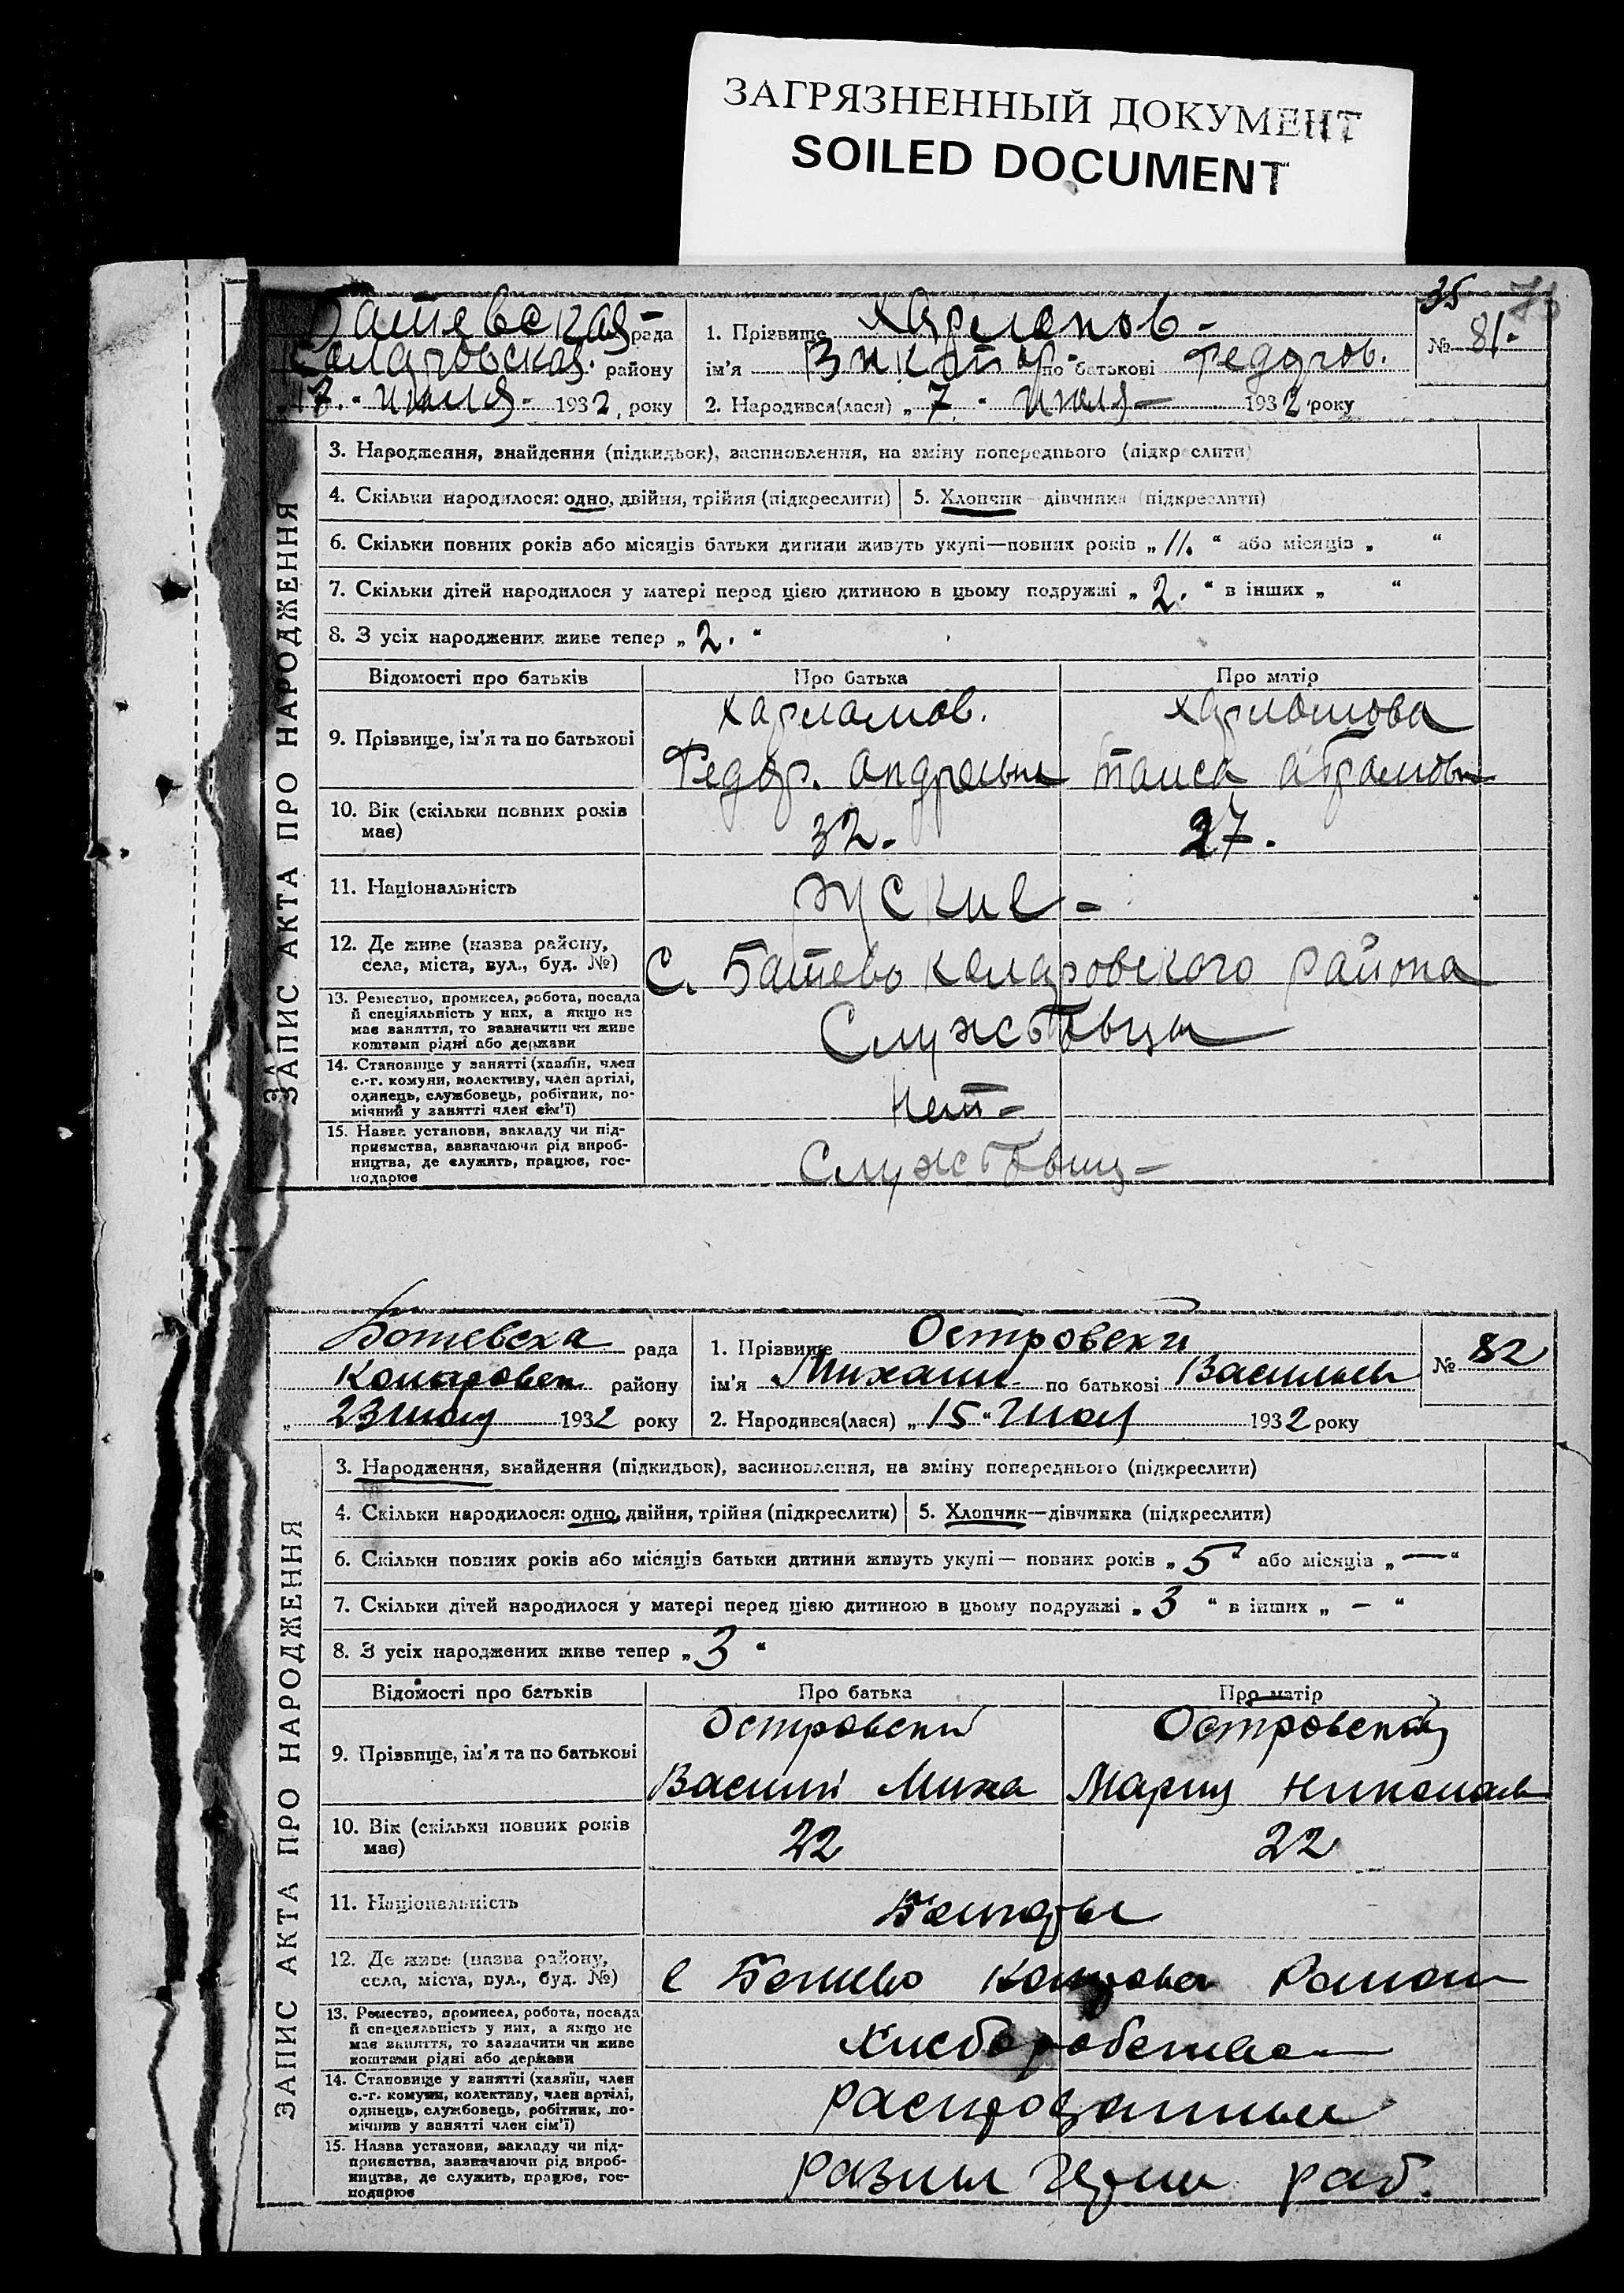 ЗАГРЯЗНЕННЫЙ ДОКУМЕНТ
SOILED DOCUMENT
35
Ботевская рада
Коларовская району
17 июля 1932 року
1. Прізвище Харламов
ім'я Виктор по батькові Федоров.
2. Народився(лася) „7“ июля 1932 року
№ 81
ЗАПИС АКТА ПРО НАРОДЖЕННЯ
3. Народження, знайдення (підкидьок), засиновлення, на зміну попереднього (підкреслити)
4. Скільки народилося: одно, двійня, трійня (підкреслити) 5. Хлопчик—дівчинка (підкреслити)
6. Скільки повних років або місяців батьки дитини живуть укупі—повних років „11.“ або місяців „ “
7. Скільки дітей народилося у матері перед цією дитиною в цьому подружжі „2.“ в інших „ “
8. З усіх народжених живе тепер „2.“
Відомості про батьків Про батька Про матір
9. Прізвище, ім'я та по батькові
Харламов. Харламова
Федор. Таиса
10. Вік (скільки повних років має)
32. 27.
11. Національність
руские
12. Де живе (назва району, села, міста, вул., буд. №)
С. Ботево Коларовского района
13. Ремество, промисел, робота, посада
й спеціяльність у них, а якщо не
має заняття, то зазначити чи живе
коштами рідні або держави
14. Становище у занятті (хазяїн, член
с.-г. комуни, колективу, член артілі,
одинець, службовець, робітник, по-
мічний у занятті член сім'ї)
Нет
15. Назва установи, закладу чи під-
приємства, зазначаючи рід вироб-
ництва, де служить, працює, гос-
подарює
Ботевска рада
району
23 1932 року
1. Прізвище Островски
ім'я Михаил по батькові Васильев
2. Народився(лася) „15“ 1932 року
№ 82
ЗАПИС АКТА ПРО НАРОДЖЕННЯ
3. Народження, знайдення (підкидьок), засиновлення, на зміну попереднього (підкреслити)
4. Скільки народилося: одно, двійня, трійня (підкреслити) 5. Хлопчик—дівчинка (підкреслити)
6. Скільки повних років або місяців батьки дитини живуть укупі— повних років „5“ або місяців „—“
7. Скільки дітей народилося у матері перед цією дитиною в цьому подружжі „3“ в інших „—“
8. З усіх народжених живе тепер „3“
Відомості про батьків Про батька Про матір
9. Прізвище, ім'я та по батькові
Островский
Василий Миха Мария Николаев
10. Вік (скільки повних років має)
22 22
11. Національність
Болгары
12. Де живе (назва району, села, міста, вул., буд. №)
с Ботево
13. Ремество, промисел, робота, посада
й спецеяльність у них, а якщо не
має заняття, то зазначити чи живе
коштами рідні або держави
14. Становище у занятті (хазяїн, член
с.-г. комуни, колективу, член артілі,
одинець, службовець, робітник, по-
мічнив у занятті член сім'ї)
15. Назва установи, закладу чи під-
приємства, зазначаючи рід вироб-
ництва, де служить, працює, гос-
подарює
раб.